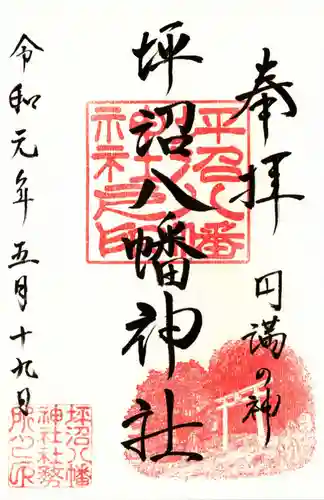 奉拝
円満の神
坪沼八幡神社
令和元年五月十九日
坪沼八幡
神社社務
所之印